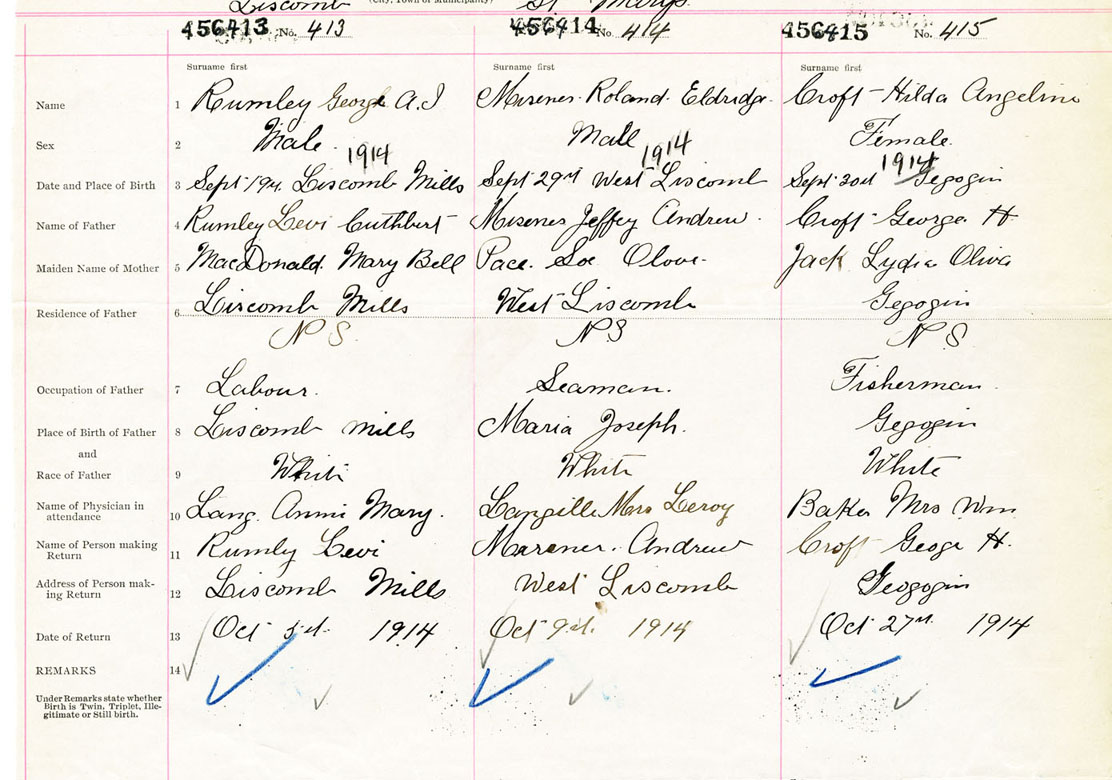 Liscomb (City, Town or Municipality) St Mary's
456413 No. 413 456414 No. 414 456415 No. 415
Surname first Surname first Surname first
Name 1 Rumley George A.J Misener. Roland. Eldridge. Croft - Hilda Angelina
Sex 2 Male. Male Female.
1914 1914 1914
Date and Place of Birth 3 Sept 19th Liscomb Mills Sept 29th West Liscomb Sept 30th Gegogin
Name of Father 4 Rumley Levi Cuthbert Misener Jeffey Andrew. Croft - George H.
Maiden Name of Mother 5 MacDonald. Mary Bell Pace. Olove. Jack Lydia Olive
Residence of Father 6 Liscomb Mills West Liscomb Gegogin
N S. N S N S.
Occupation of Father 7 Labour. Seaman. Fisherman.
Place of Birth of Father 8 Liscomb mills Maria Joseph. Gegogin
and
Race of Father 9 White White White
Name of Physician in
attendance 10 Lang. Annie Mary. Langille Mrs Leroy Baker Mrs Wm
Name of Person making
Return 11 Rumly Levi Marener. Andrew Croft George H.
Address of Person mak-
ing Return 12 Liscomb Mills West Liscomb Geogogin
Date of Return 13 Oct 1914 Oct 1914 Oct 27th 1914
REMARKS 14
Under Remarks state whether
Birth is Twin, Triplet, Ille-
gitimate or Still birth.